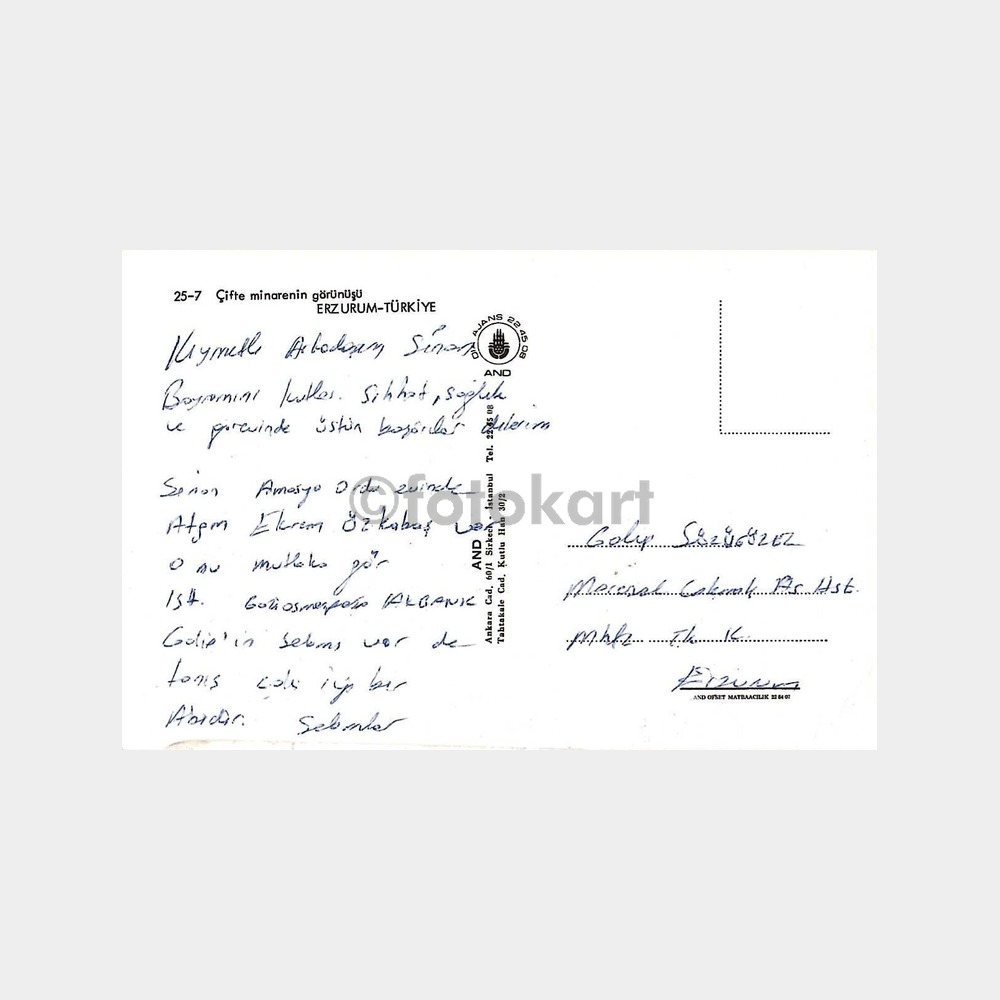 25-7 Çifte minarenin görünüşü
ERZURUM-TÜRKİYE
Kıymetli Arkadaşım Sinan
Bayramını kutlar. Sıhhat, sağlık
ve görevinde üstün başarılar dilerim
Sinan Amasya Ordu evinde
Atğm Ekrem Özkabaş var
onu mutlaka gör
İşt. Gaziosmanpaşa AKBANK
Galip'in selamı var de
çok iyi bir
Abidir. Selamlar
AJANS 22 45 08
AND
AND
Ankara Cad. 60/1 Sirkeci - İstanbul Tel. 22 45 08
Tahtakale Cad. Kutlu Han 30/2
©fotokart
Galip SÖZÜGÜZEL
Mareşal Çakmak As Hst.
Mhfz K.
Erzurum
AND OFSET MATBAACILIK 22 84 07